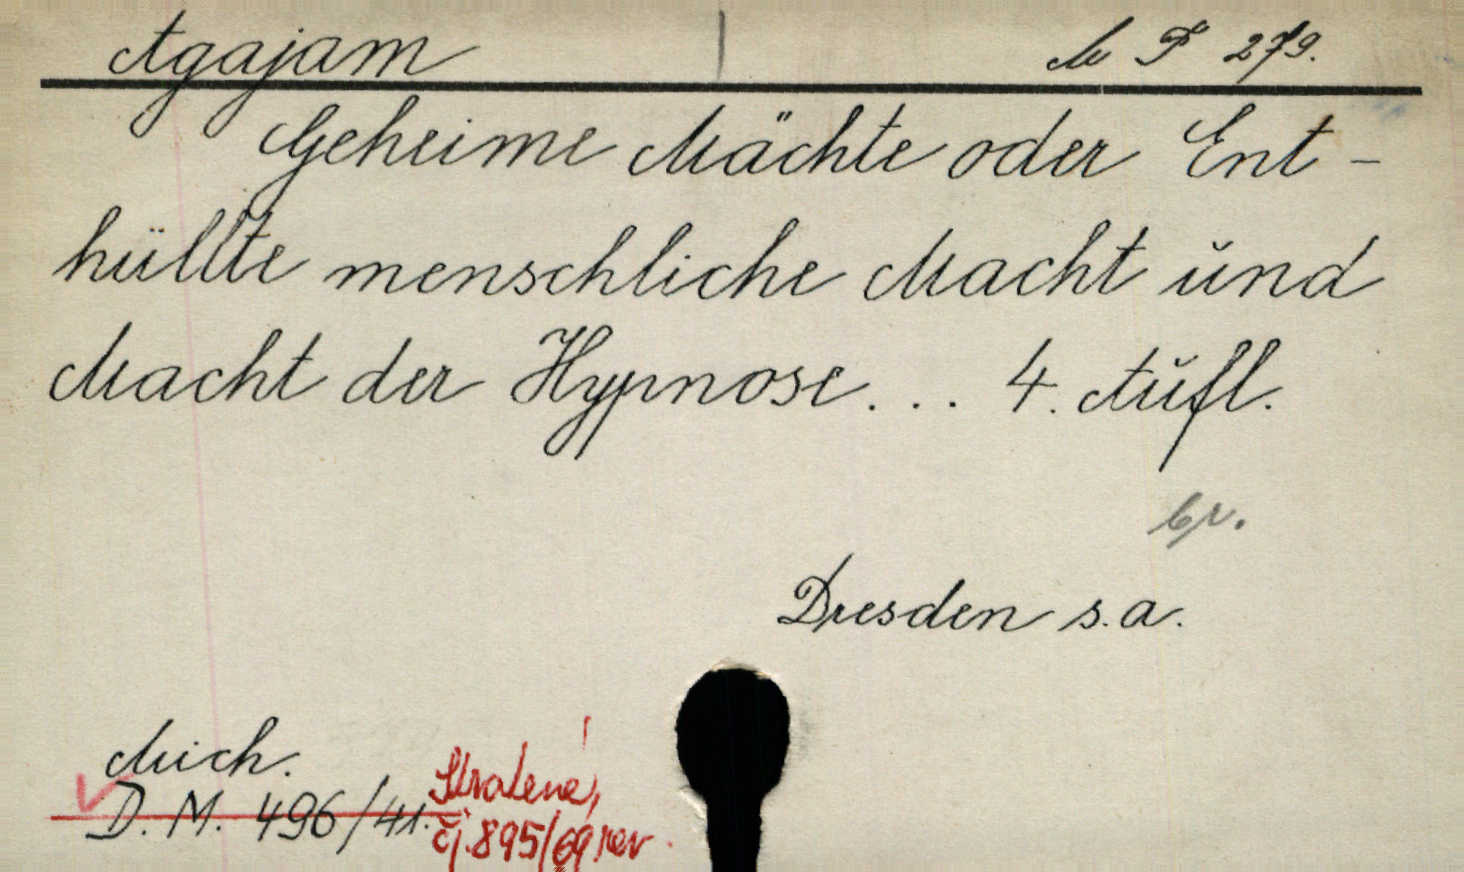 Agajam M F 279.
Geheime Mächte oder Ent-
hüllte menschliche Macht und
Macht der Hypnose... 4. Aufl.
br.
Dresden s.a.
Mich.
D. M. 496/41. Ztracené,
čj. 895/69 rev